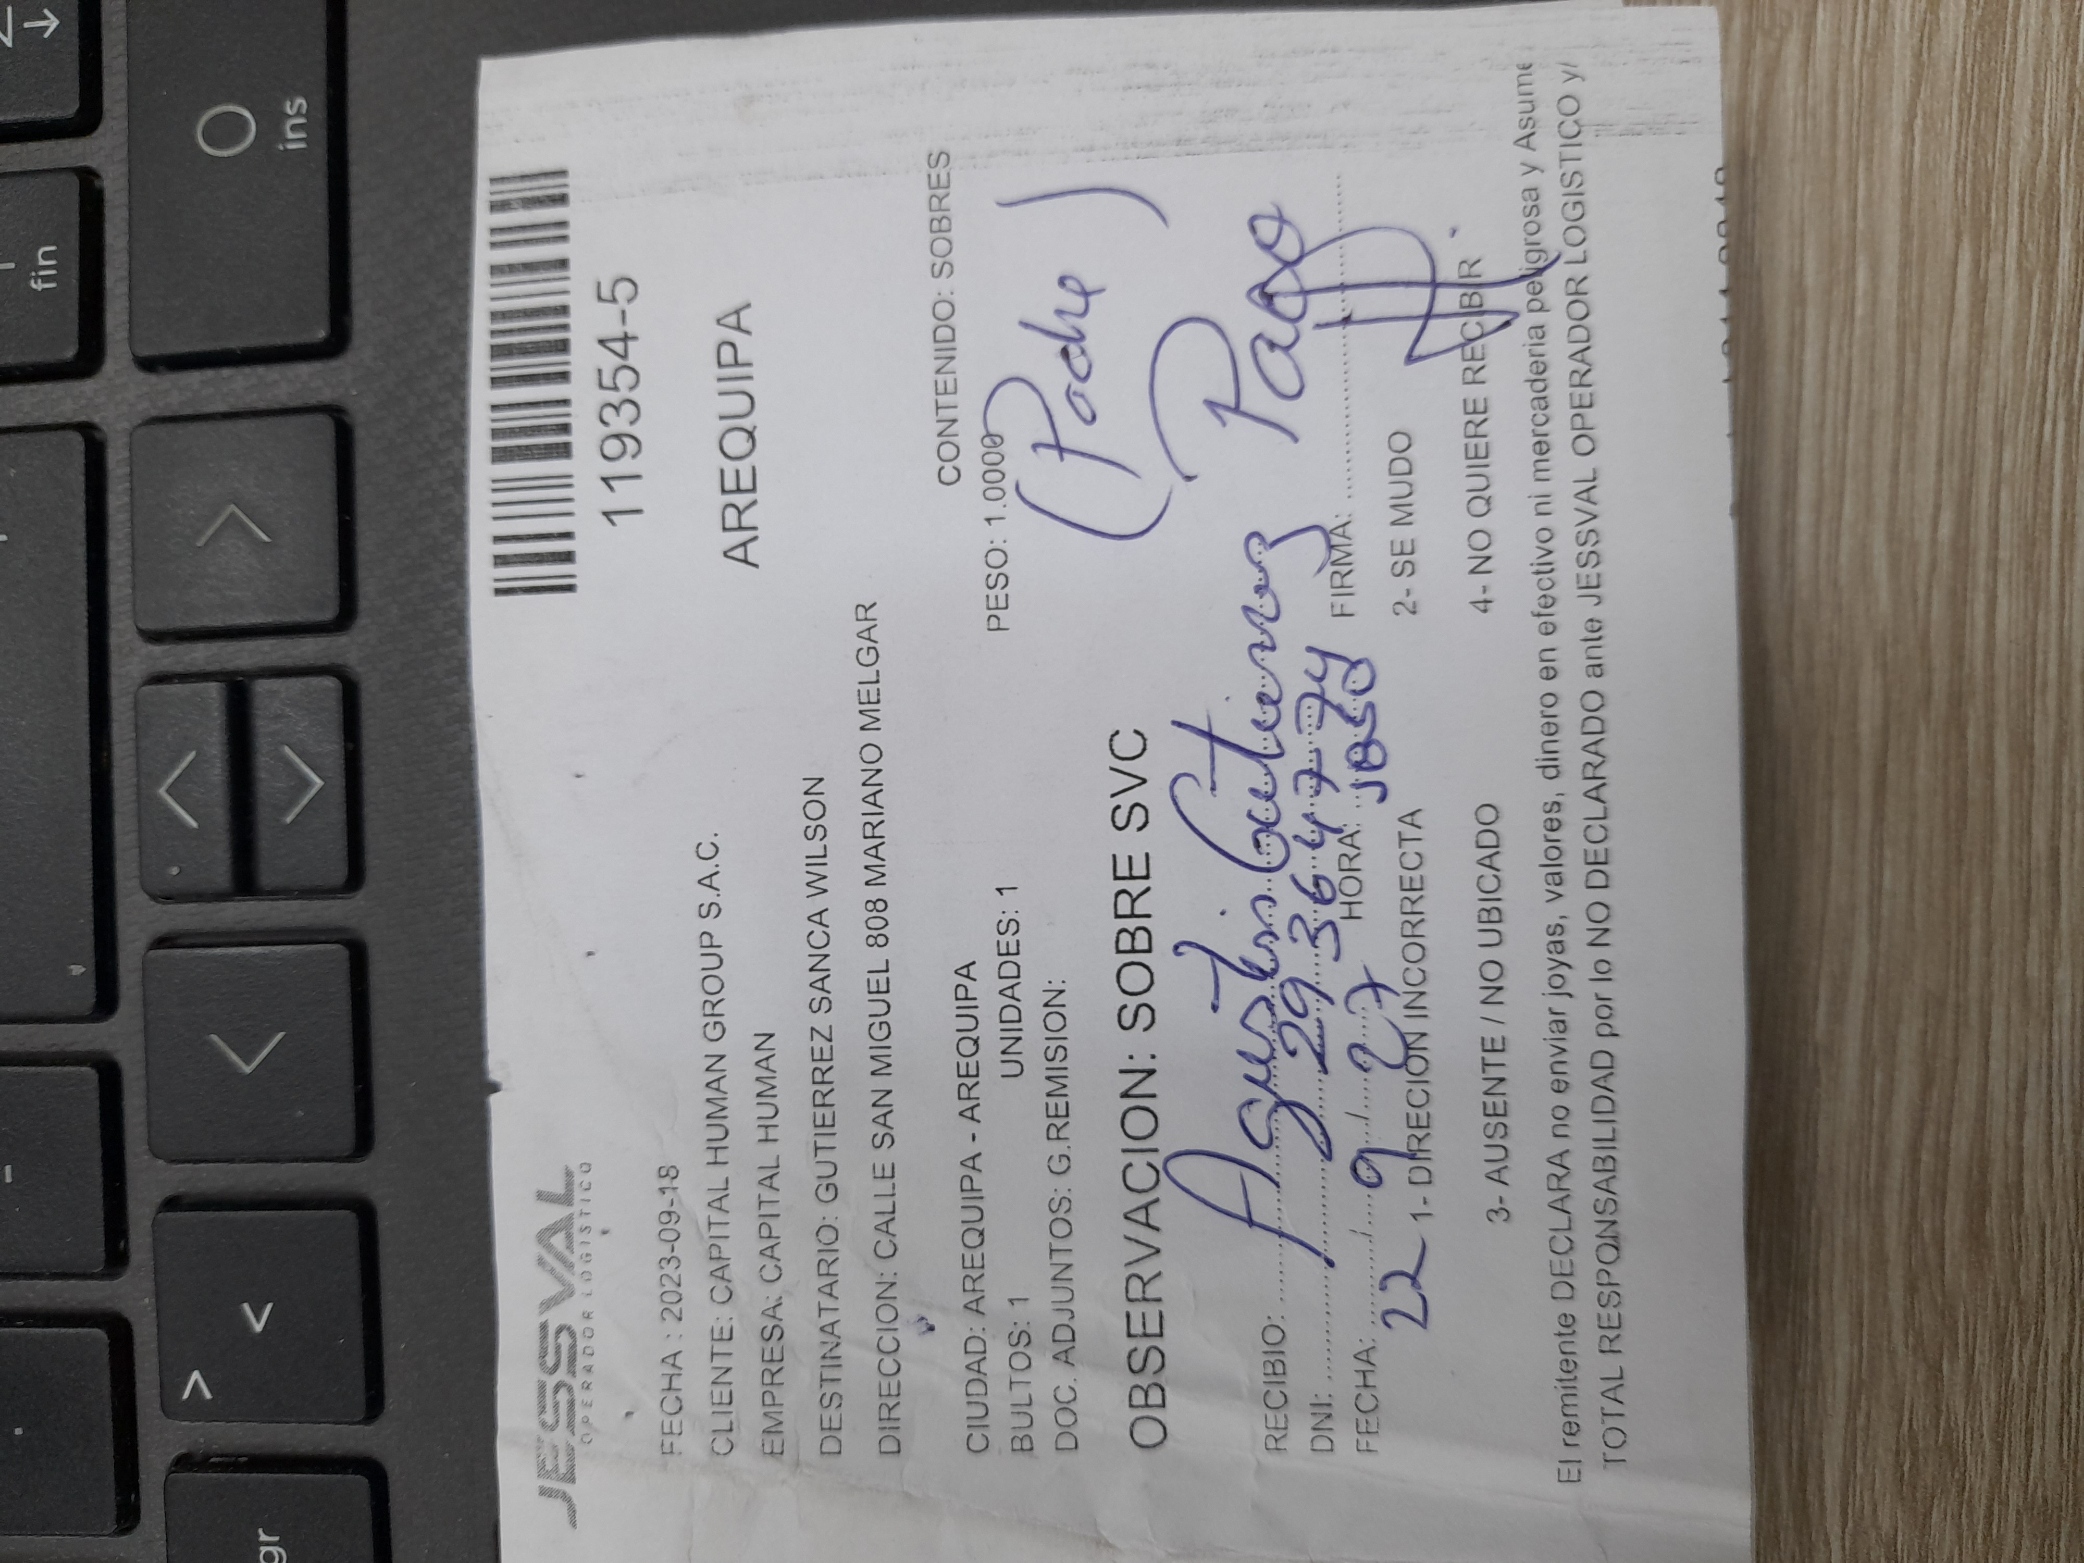 fin
gr
>
<
0
ins
JESSVAL
OPERADOR LOGISTICO
119354-5
FECHA : 2023-09-18
CLIENTE: CAPITAL HUMAN GROUP S.A.C.
AREQUIPA
EMPRESA: CAPITAL HUMAN
DESTINATARIO: GUTIERREZ SANCA WILSON
DIRECCION: CALLE SAN MIGUEL 808 MARIANO MELGAR
CONTENIDO: SOBRES
CIUDAD: AREQUIPA - AREQUIPA
BULTOS: 1 UNIDADES: 1 PESO: 1.0000
DOC. ADJUNTOS: G.REMISION:
(Padre)
OBSERVACION: SOBRE SVC
RECIBIO: Agustin Gutierrez Paco
DNI: 29364774
FECHA: 22 / 9 / 27 HORA: FIRMA:
1- DIRECION INCORRECTA 2- SE MUDO
3- AUSENTE / NO UBICADO 4- NO QUIERE RECIBIR
El remitente DECLARA no enviar joyas, valores, dinero en efectivo ni mercaderia peligrosa y Asume
TOTAL RESPONSABILIDAD por lo NO DECLARADO ante JESSVAL OPERADOR LOGISTICO y/